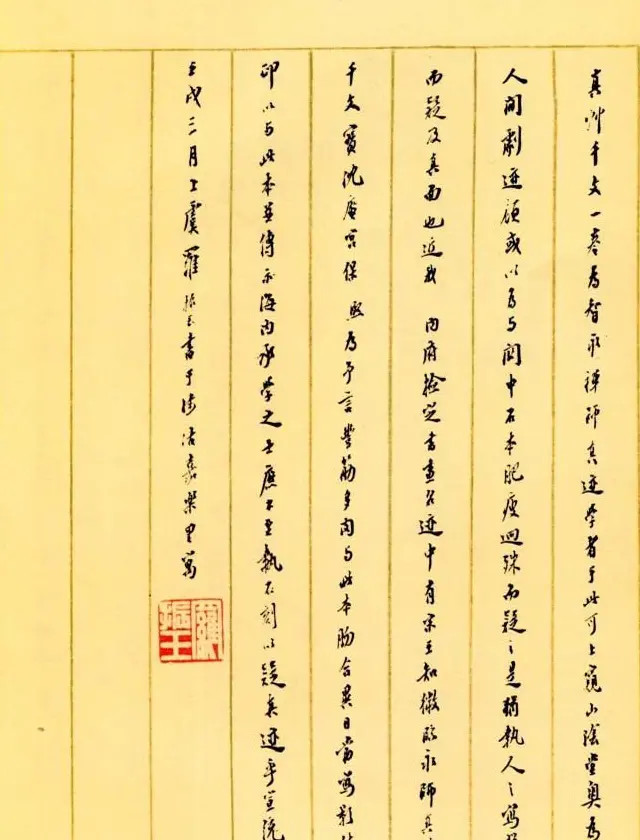 真艸千文一卷為智永禪師真迹學者于此可上窺山陰堂奧為
人間劇迹顧或以為與關中石本肥瘦迥殊而疑之是猶執人之寫
而疑及真面也近我 內府檢定書畫名迹中有宋王知微臨永師真
千文寶沈庵宮保 熙為予言豐筋多肉與此本脗合異日當寫影
印以與此本並傳示海內承學之士庶不至執石刻以疑真迹乎宣統
壬戌三月上虞羅振玉書于津沽嘉樂里寓
羅振玉